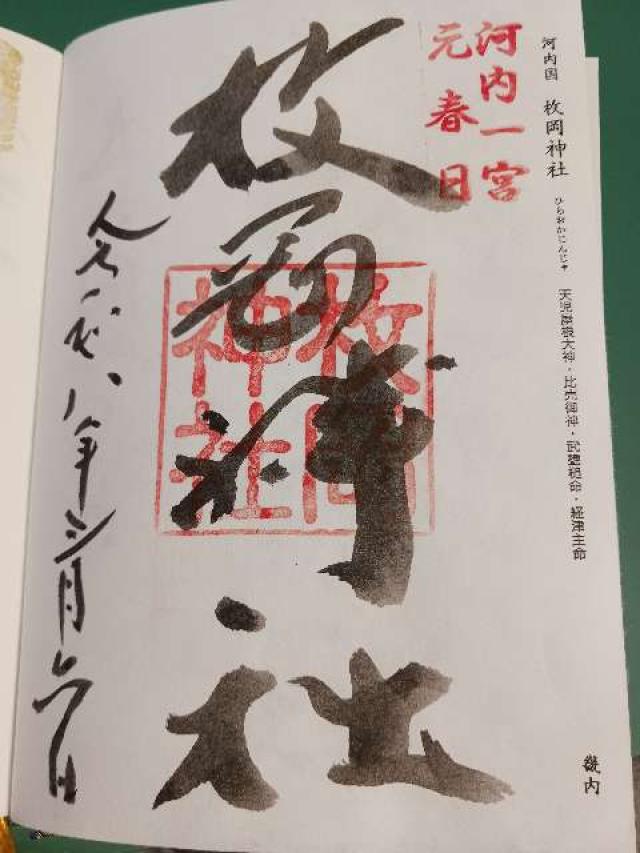 河内国 枚岡神社 ひらおかじんじゃ 天児屋根大神・比売御神・武甕槌命・経津主命
畿内
河内一宮
元春日
枚岡神社
枚岡
神社
令和八年三月六日